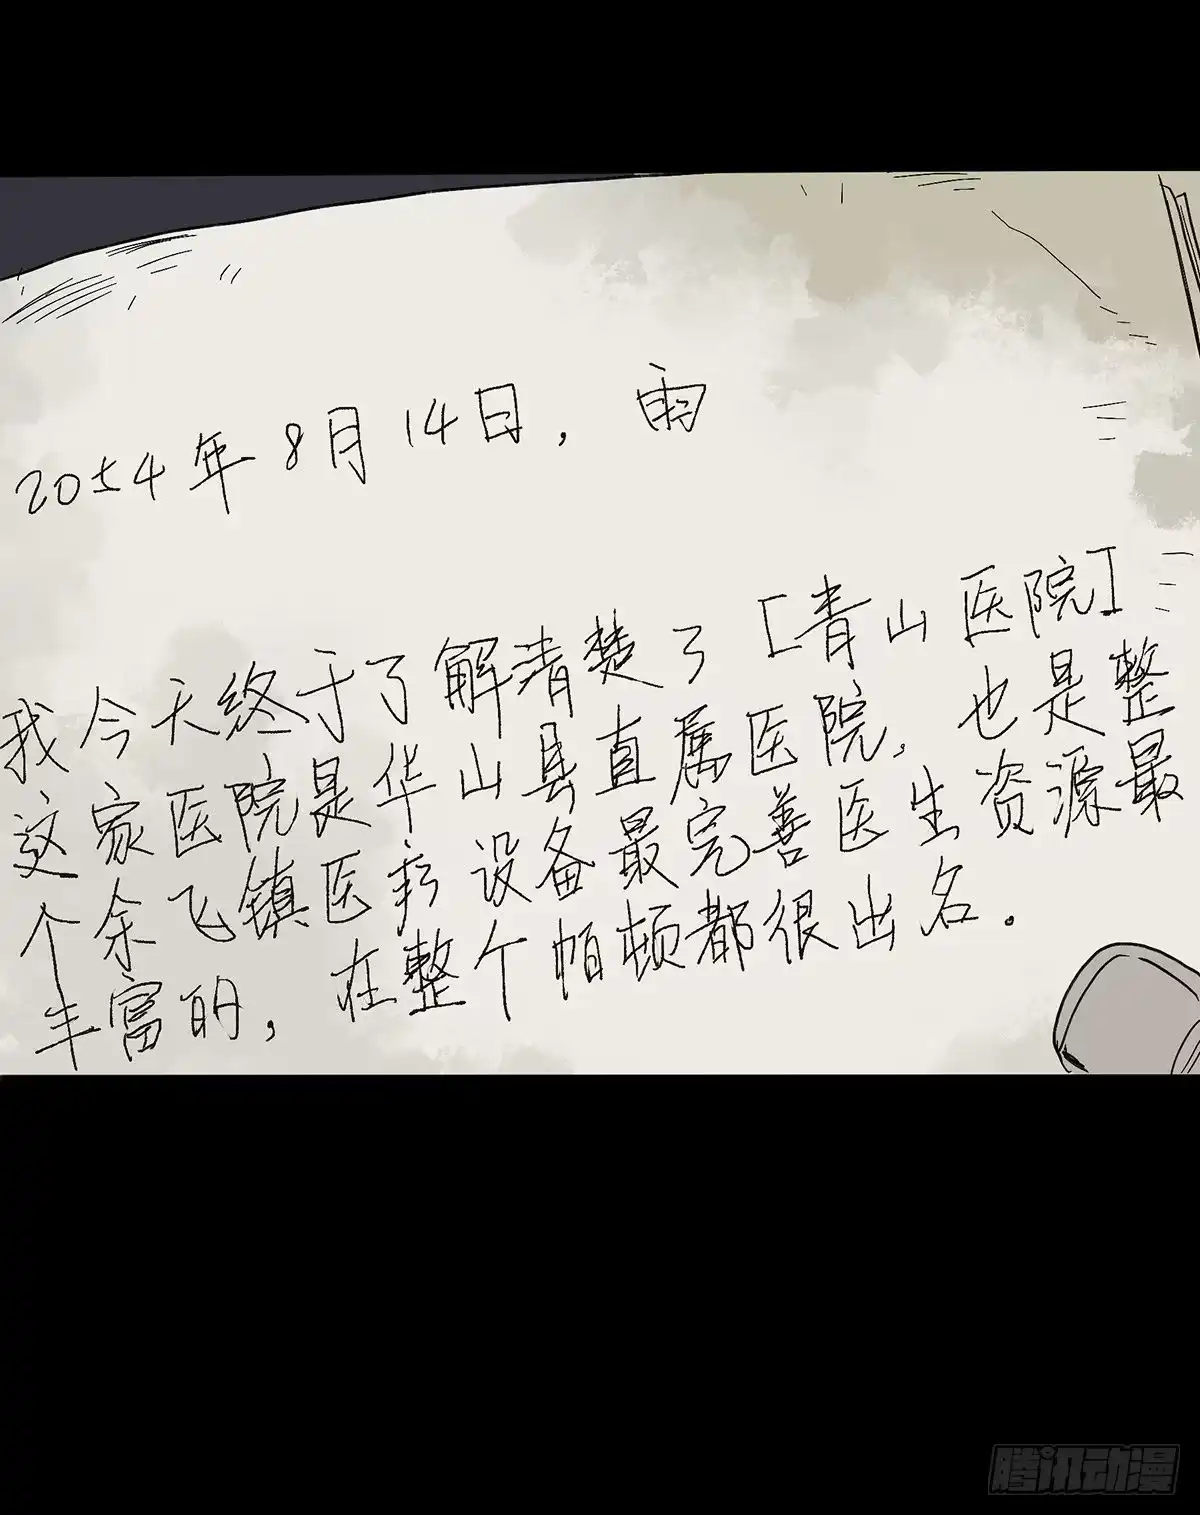 2054年8月14日，雨
我今天终于了解清楚了[青山医院]
这家医院是华山县直属医院，也是整
个余飞镇医疗设备最完善医生资源最
丰富的，在整个帕顿都很出名.
腾讯动漫